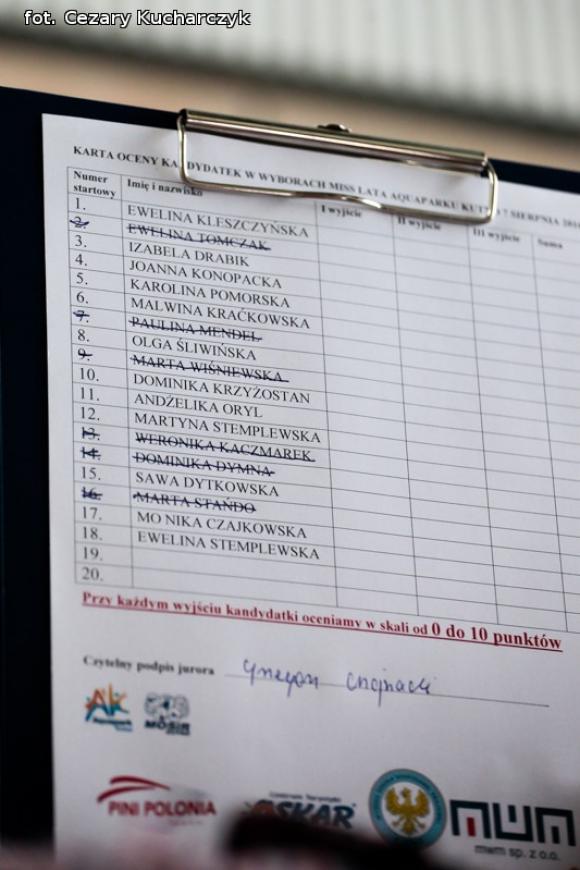 fot. Cezary Kucharczyk
KARTA OCENY KANDYDATEK W WYBORACH MISS LATA AQUAPARKU 7 SIERPNIA
Numer startowy Imię i nazwisko I wyjście II wyjście III wyjście Suma
1. EWELINA KLESZCZYŃSKA
2. EWELINA TOMCZAK
3. IZABELA DRABIK
4. JOANNA KONOPACKA
5. KAROLINA POMORSKA
6. MALWINA KRAĆKOWSKA
7. PAULINA MENDEL
8. OLGA ŚLIWIŃSKA
9. MARTA WIŚNIEWSKA
10. DOMINIKA KRZYŻOSTAN
11. ANDŻELIKA ORYL
12. MARTYNA STEMPLEWSKA
13. WERONIKA KACZMAREK
14. DOMINIKA DYMNA
15. SAWA DYTKOWSKA
16. MARTA STAŃDO
17. MO NIKA CZAJKOWSKA
18. EWELINA STEMPLEWSKA
19.
20.
Przy każdym wyjściu kandydatki oceniamy w skali od 0 do 10 punktów
Czytelny podpis jurora Grzegorz Chojnacki
MOSiR
PINI POLONIA OSKAR mwm
mwm sp. z o.o.